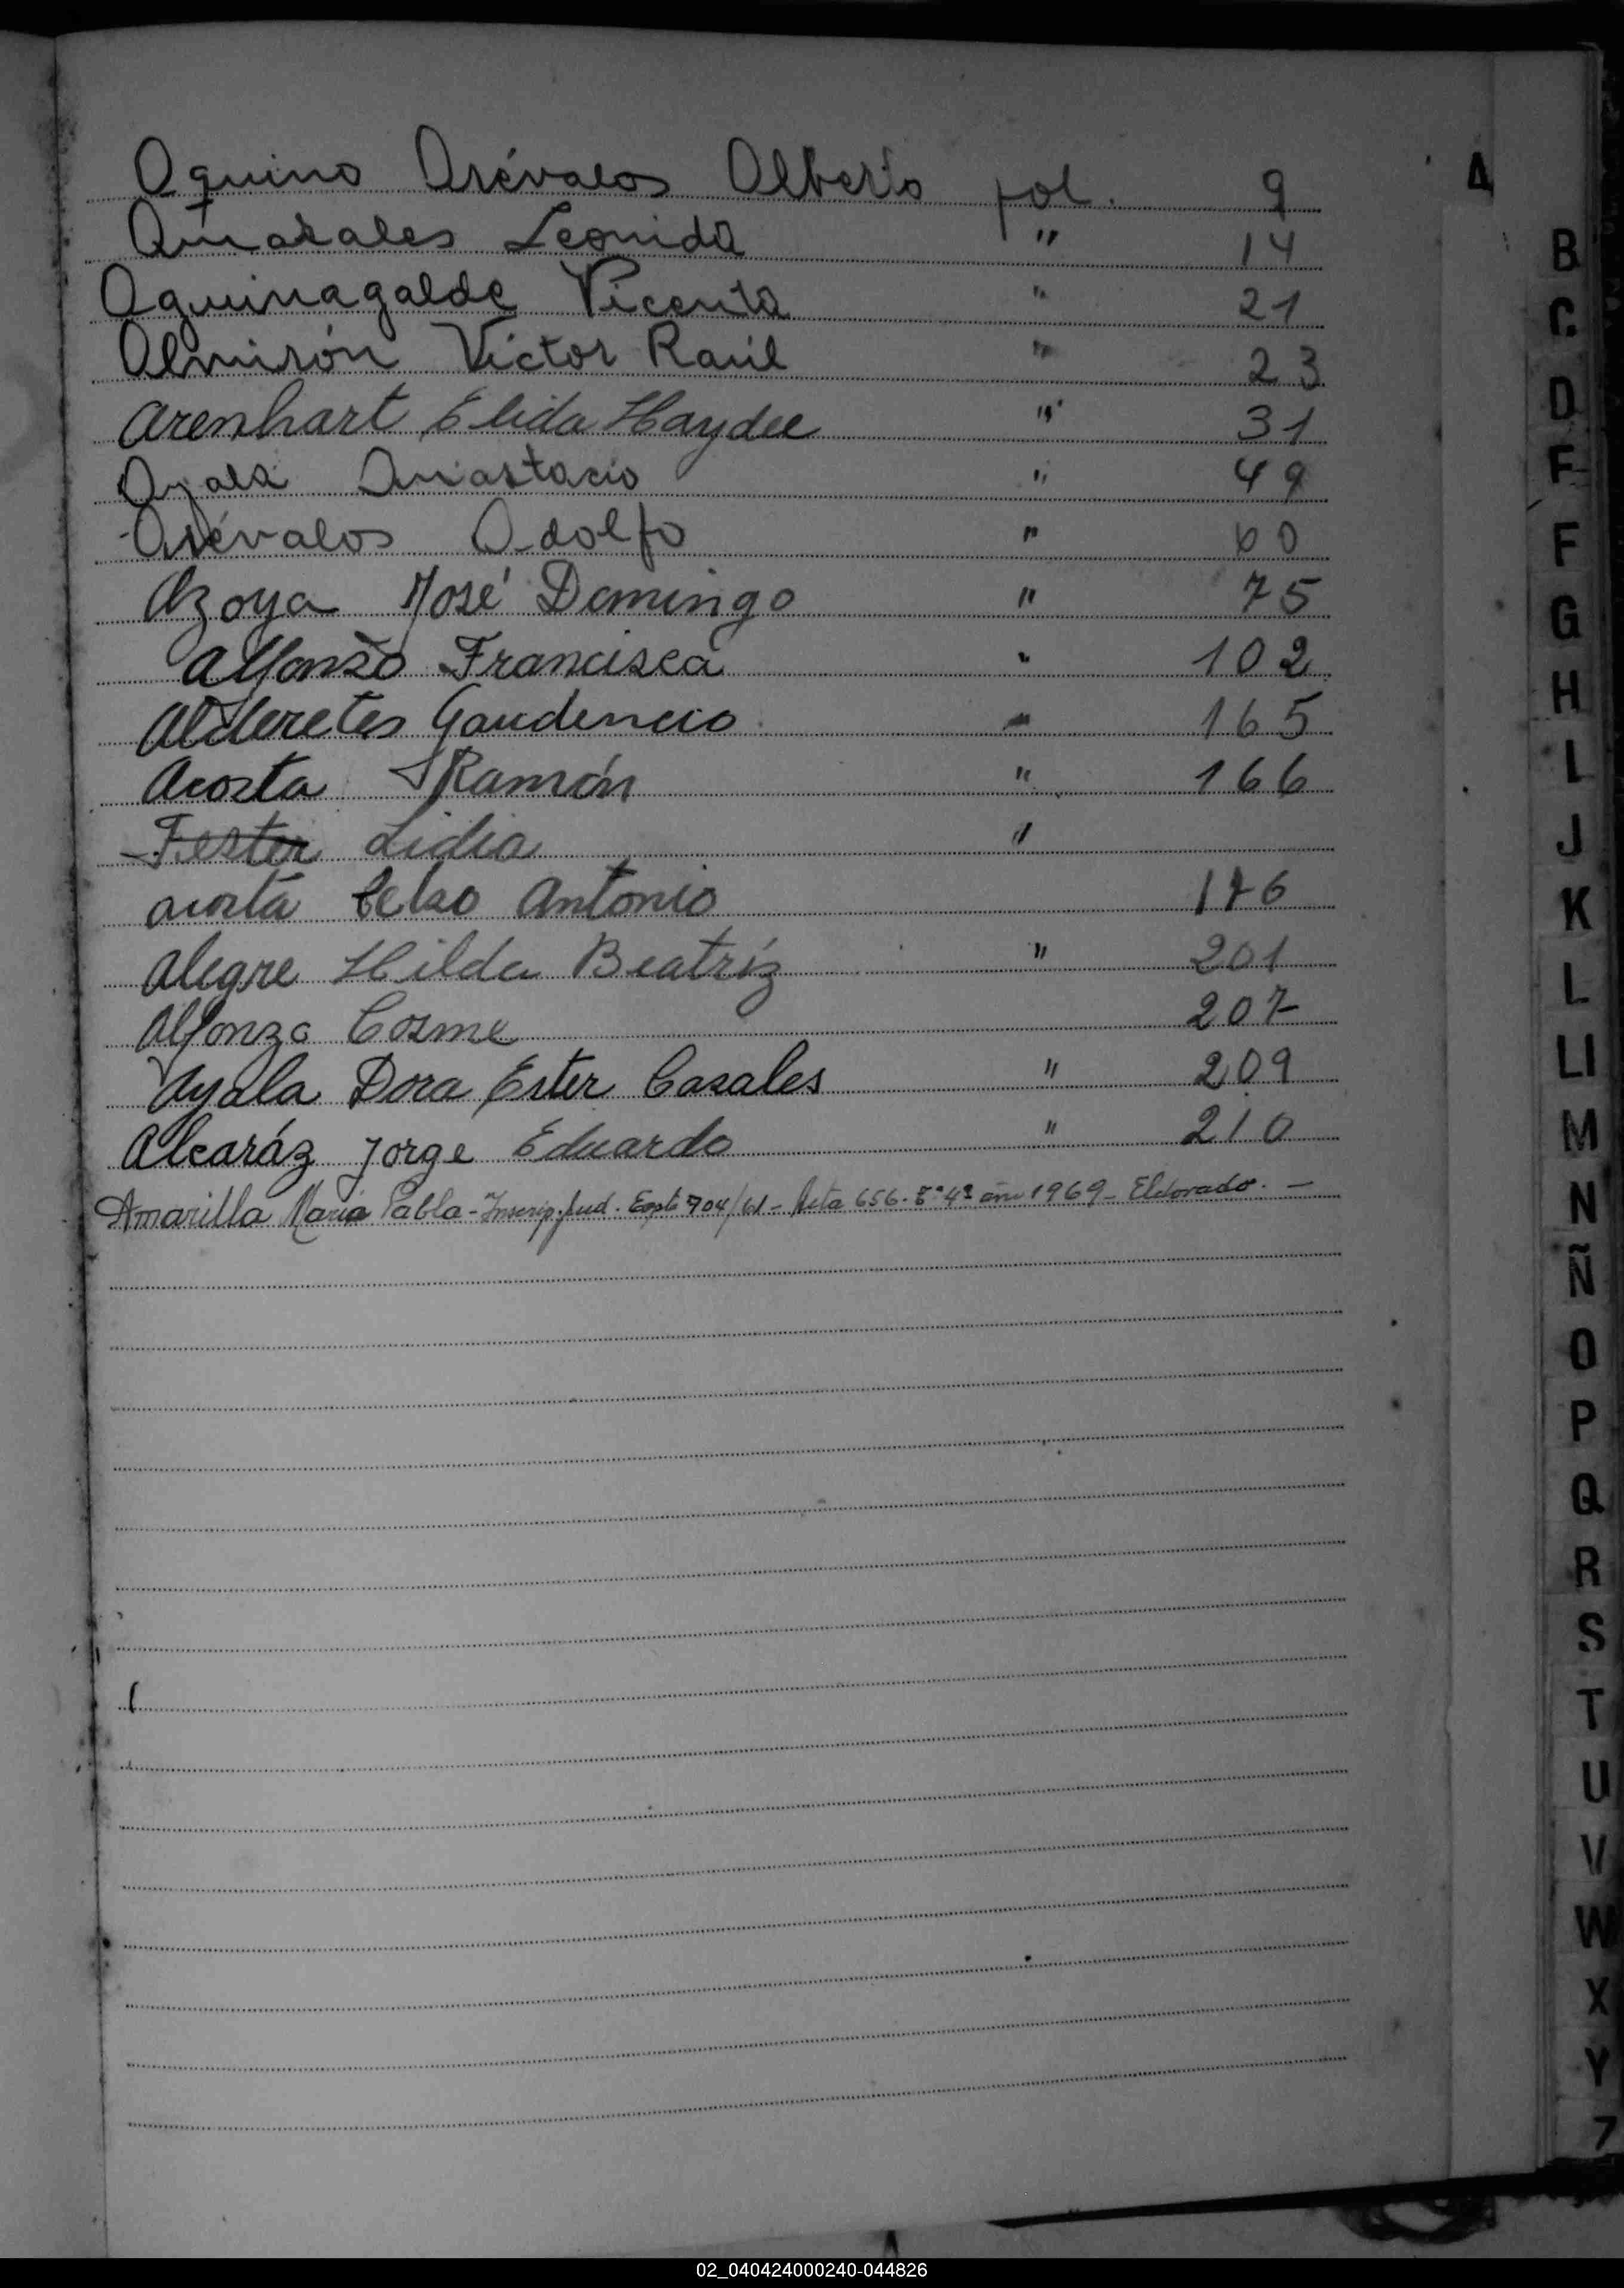 Aquino Arévalos Alberto fol. 9
Amarales Leonida " 14
Aguinagalde Vicenta " 21
Almirón Víctor Raúl " 23
Arenhart Elida Haydee " 31
Ayala Anastacio " 49
Arévalos Adolfo " 60
Azoya José Domingo " 75
Alfonso Francisca " 102
Alderetes Gaudencio " 165
Acosta Ramón " 166
Fester Lidia "
Acosta Celso Antonio 176
Alegre Hilda Beatríz " 201
Alfonzo Cosme 207
Ayala Dora Ester Casales " 209
Alcaráz Jorge Eduardo " 210
Amarilla María Pabla - Inscrip. Jud. Expte 704/61 - Acta 656 - Tº 4º año 1969 - Eldorado. -
A
B
C
D
E
F
G
H
I
J
K
L
Ll
M
N
Ñ
O
P
Q
R
S
T
U
V
W
X
Y
Z
02_040424000240-044826